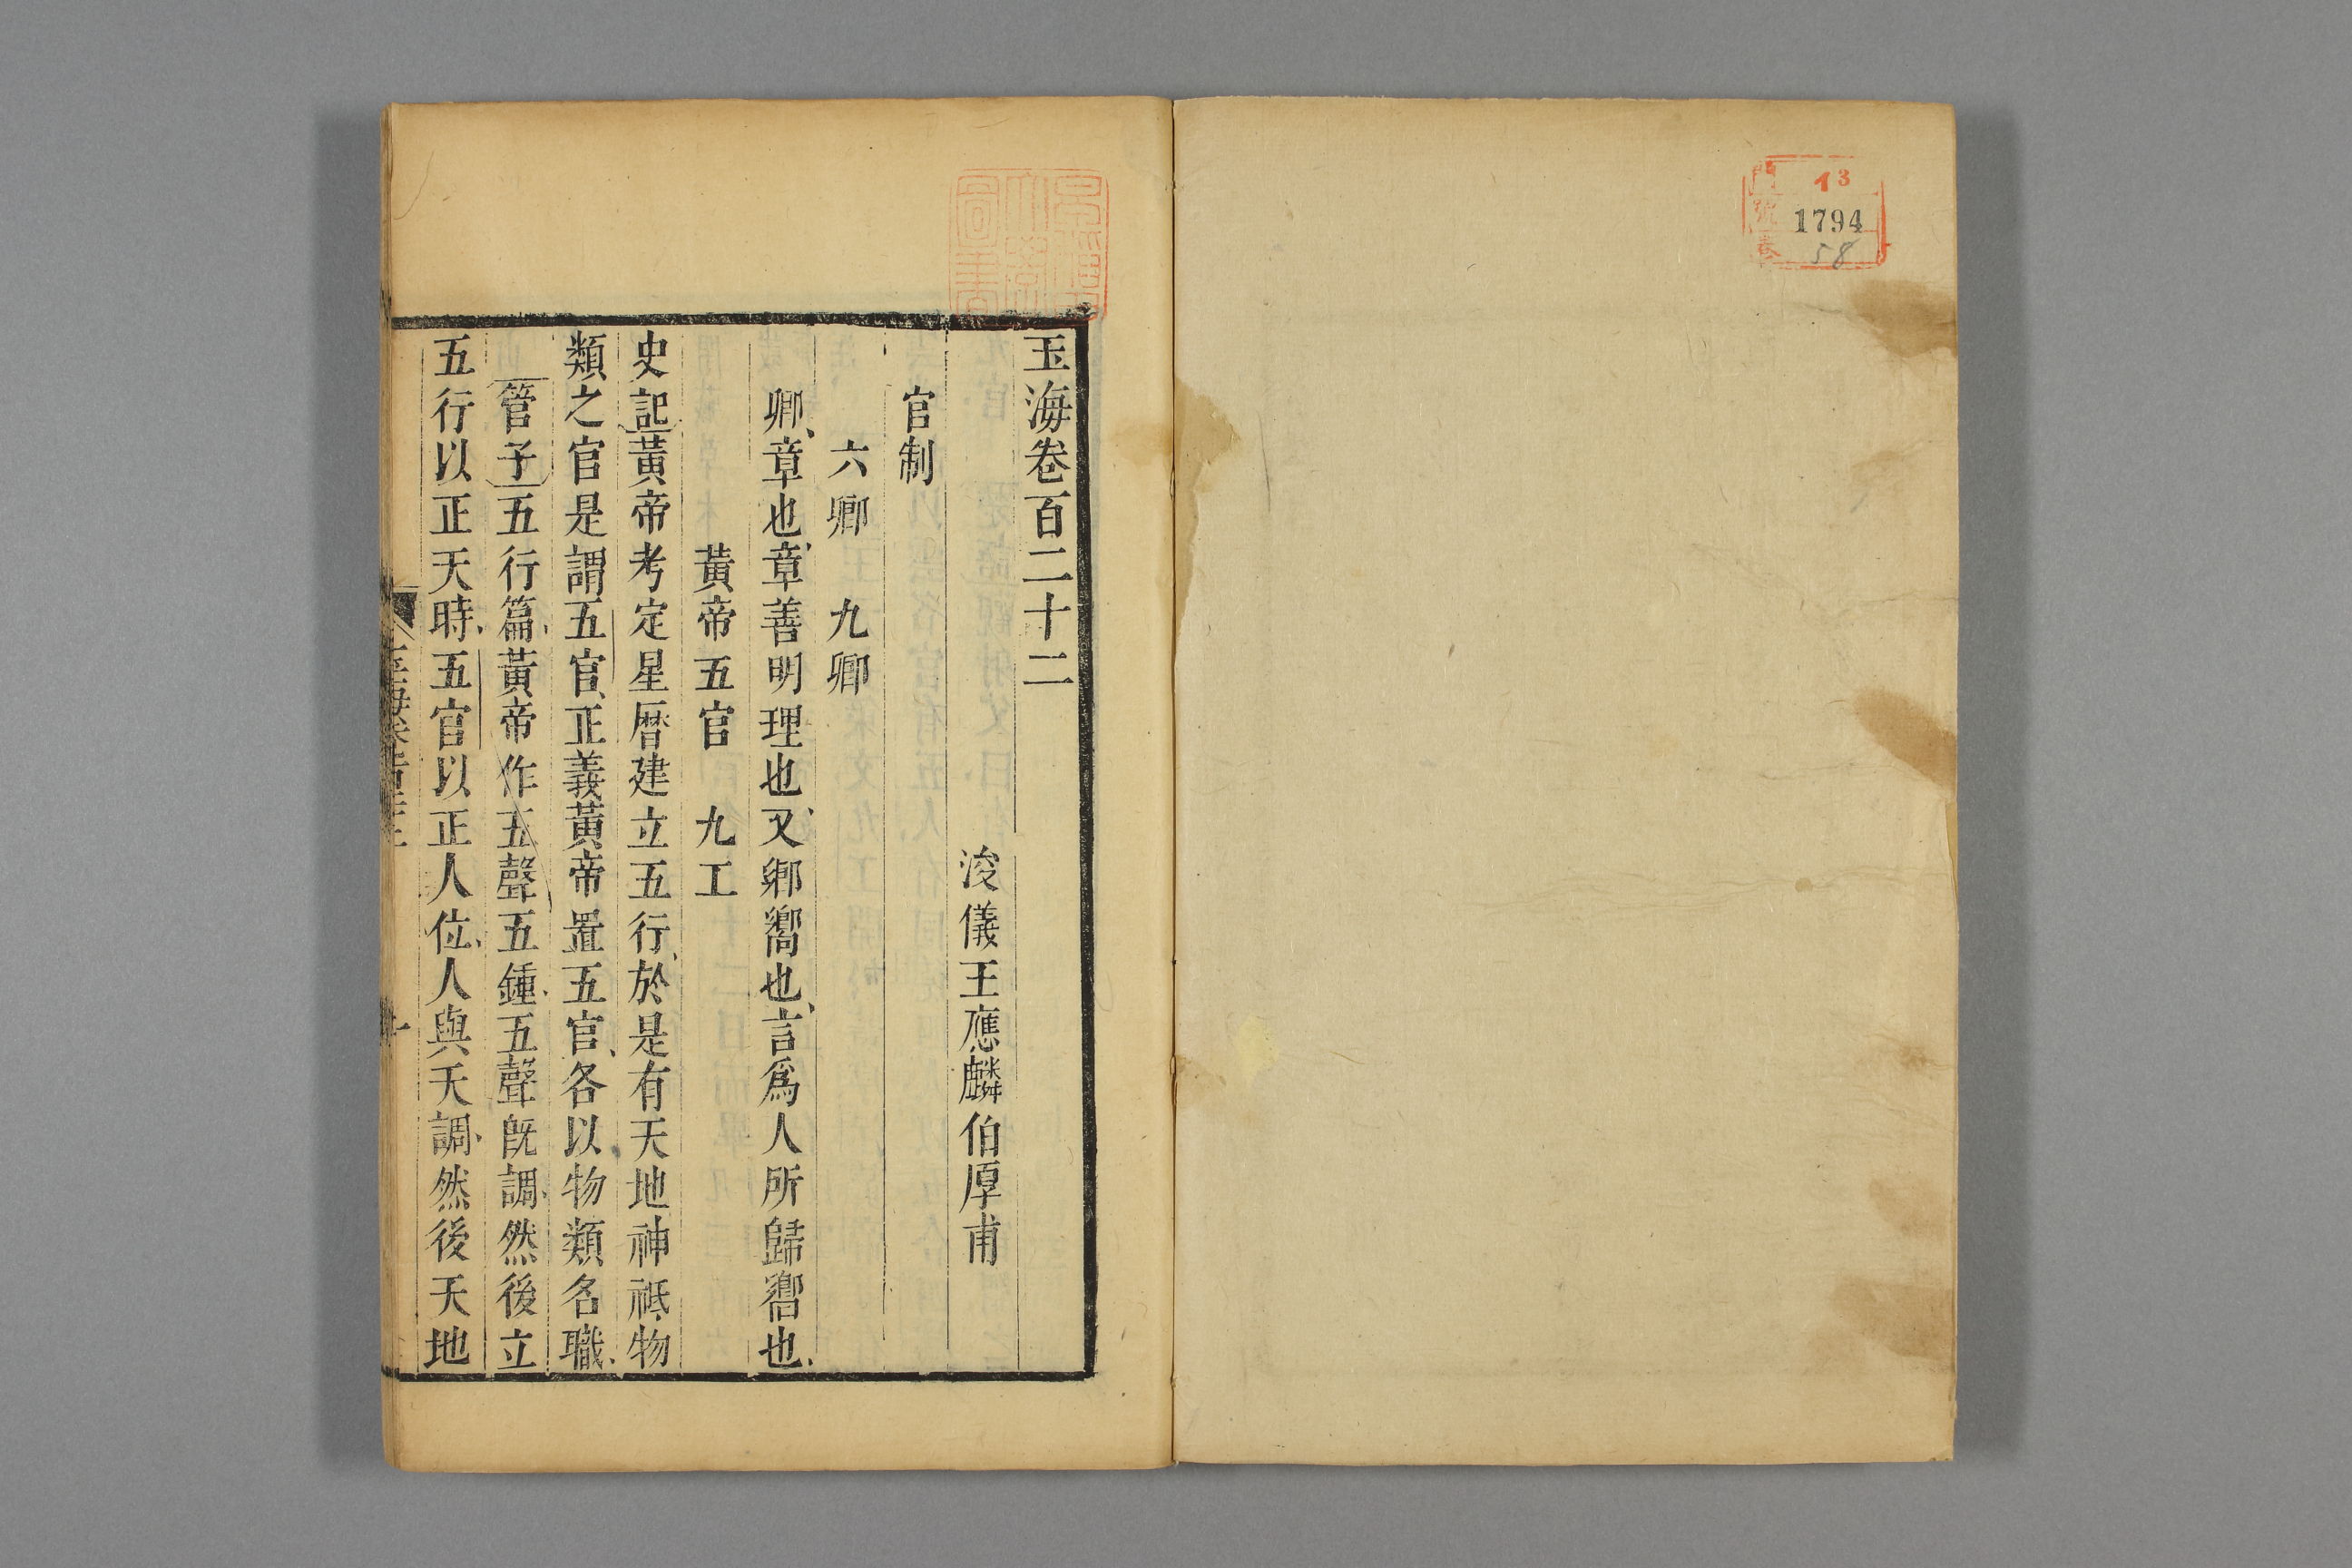 門 13
號 1794
卷 58
玉海卷百二十二
浚儀王應麟伯厚甫
官制
六卿 九卿
卿、章也、章善明理也、又卿嚮也、言爲人所歸嚮也、
黃帝五官 九工
史記黃帝考定星曆建立五行、於是有天地神祗物
類之官是謂五官、正義黃帝置五官、各以物類名職、
管子五行篇、黃帝作五聲五鍾、五聲旣調、然後立
五行以正天時、五官以正人位、人與天調、然後天地
玉海卷百二十二
一